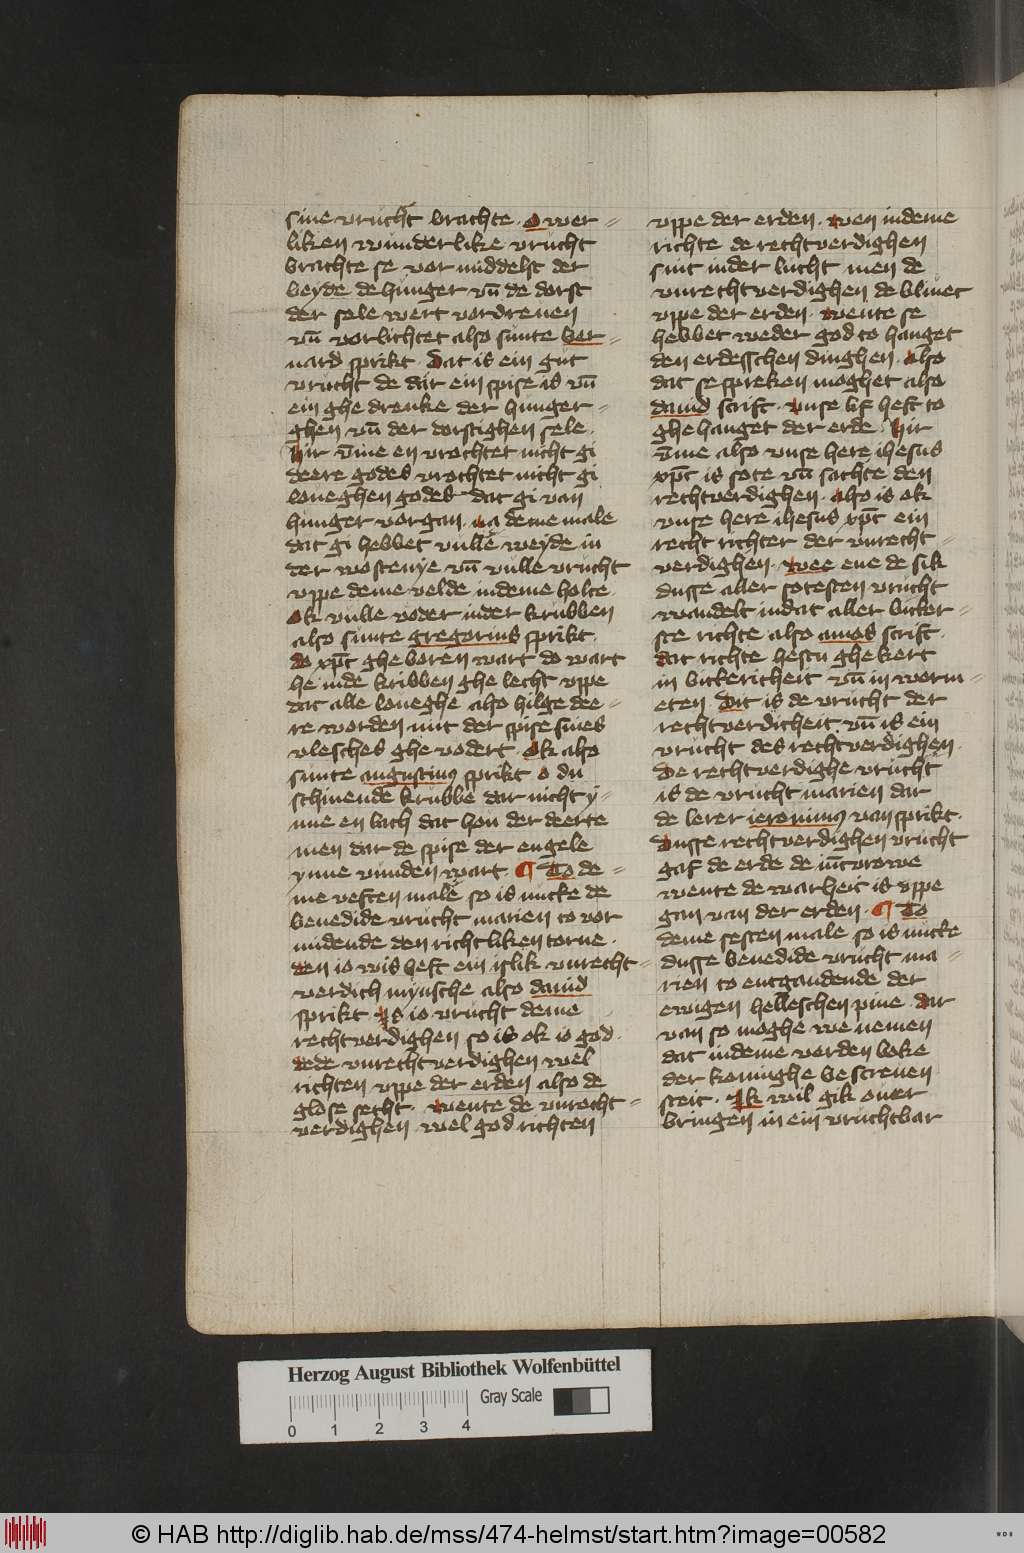 sine vrucht brachte. O wer=
liken wunderlike vrucht
brachte se vor middelst der
beyde de hunger vn̄ de dorst
der sele wert vordreuen
vn̄ vorlichtet also sunte ber=
nard sprikt. Dat is ein gut
vrucht de dar ein spise is vn̄
ein ghedrenke der hunger=
ghen vn̄ der dorstighen sele.
Hir v̄me en vrochtet nicht gi
deere godes vrochtet nicht gi
loueghen godes dat gi van
hunger vorgan. na deme male
dat gi hebbet vulle weyde in
der wostenye vn̄ vulle vrucht
vppe deme velde in deme holte.
Ok vulle voder inder krubben
also sunte gregorius sprikt.
do xp̄c gheboren wart do wart
he inde kribben ghelecht vppe
dat alle loueghe also hilge dee=
re worden mit der spise sines
vlesches ghevodert. Ok also
sunte augustinus sprikt o du
schinende krubbe dar nicht y=
nne en lach dat hou der deerte
men dar de spise der engele
ynne vunden wart. ¶ To de=
me veften male so is nutte de
benedide vrucht marien to vor
midende den richtliken torne.
den io wis heft ein islik vnrecht=
verdich mynsche also dauid
sprikt Is io vrucht deme
rechtverdighen so is ok io god.
dede vnrechtverdighen wel
richten vppe der erden also de
glose secht. wente de vnrecht=
verdighen wel god richten
vppe der erden. wen indeme
richte de rechtverdighen
sint inder lucht men de
vnrechtverdighen de bliuet
vppe der erden. wente se
hebbet weder god to hanget
den erdesschen dinghen. also
dat se spreken moghet also
dauid scrift. vnse lif heft to
ghehanget der erde. Hir
v̄me also vnse here ihesus
xp̄c is sote vn̄ sachte den
rechtverdighen. also is ok
vnse here ihesus xp̄c ein
recht richter der vnrecht=
verdighen. wee eme de sik
dusse aller sotesten vrucht
wandelt indat aller bitter=
ste richte also amos scrift.
dat richte hestu ghekert
in bittericheit vn̄ in worm=
eten. Dit is de vrucht der
rechtverdicheit vn̄ is ein
vrucht des rechtverdighen.
De rechtverdighe vrucht
is de vrucht marien dar
de lerer ieronimus van sprikt.
Dusse rechtverdighen vrucht
gaf de erde de iūcvrowe
wente de warheit is vppe
gan van der erden. ¶ To
deme sesten male so is nutte
dusse benedide vrucht ma=
rien to entgaudende der
ewigen helleschen pine. dar
van so moghe we nemen
dat indeme verden boke
der koninghe bescreuen
steit. Ik wil gik ouer
bringen in ein vruchtbar
Herzog August Bibliothek Wolfenbüttel
Gray Scale
0 1 2 3 4
© HAB http://diglib.hab.de/mss/474-helmst/start.htm?image=00582